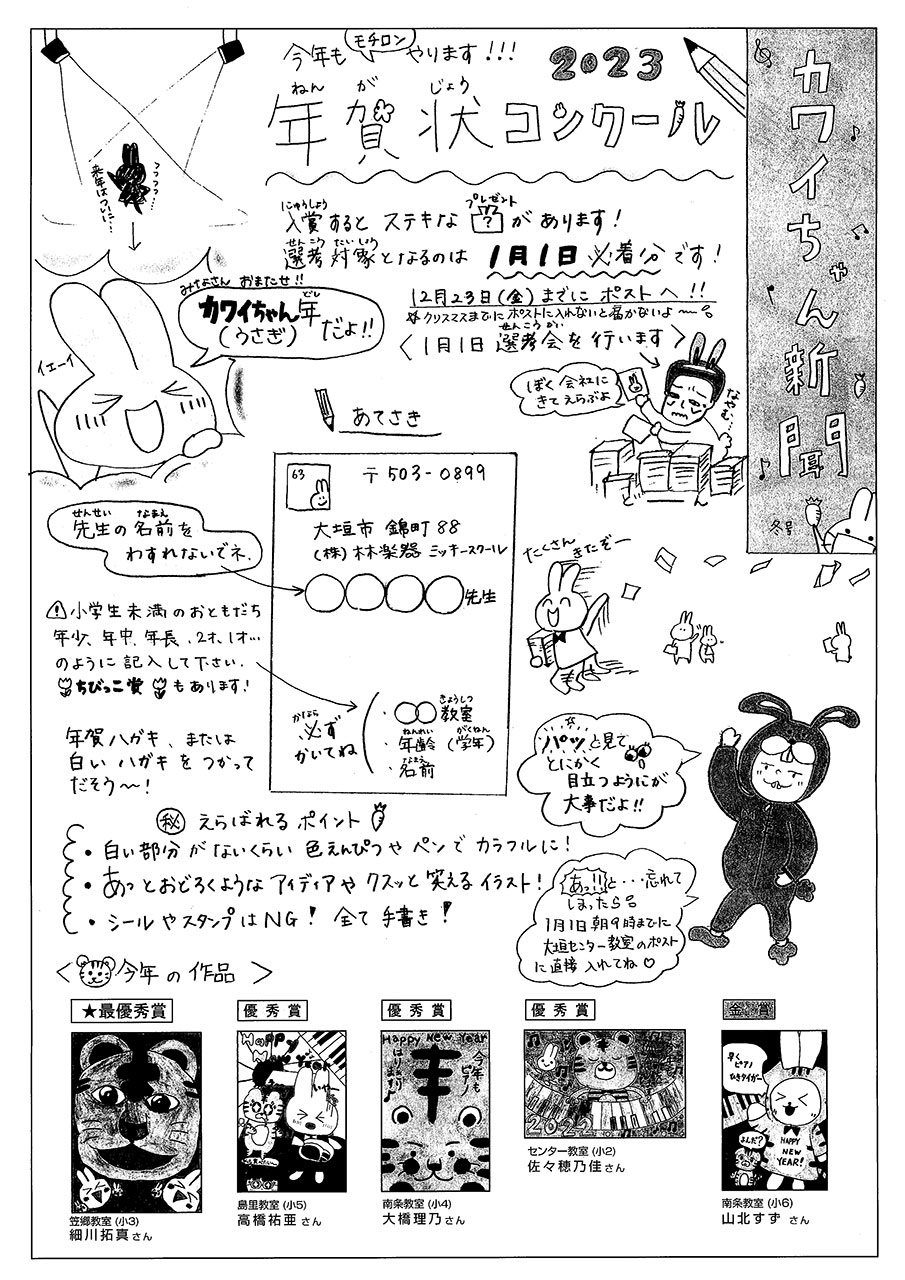 カワイちゃん新聞
冬号
今年も モチロン やります!!!
2023
ねん が じょう
年賀状コンクール
来年はついに…
フフフッ…
みなさん おまたせ!!
カワイちゃん年だよ!!
どし
(うさぎ)
イエーイ
にゅうしょう プレゼント
入賞すると ステキな ? があります!
せんこう たいしょう
選考対象となるのは 1月1日 必着分です!
12月23日(金)までに ポストへ!!
クリスマスまでに ポストに入れないと届かないよ〜。
せんこう かい
<1月1日 選考会を行います>
ぼく 会社に
きて えらぶよ
なやむ…
あてさき
63
〒503-0899
大垣市 錦町 88
(株)林楽器 ミッキースクール
〇〇〇〇先生
せんせい なまえ
先生の名前を
わすれないでネ.
⚠小学生未満のおともだち
年少、年中、年長、2才、1才…
のように記入して下さい.
ちびっこ賞 もあります!
かなら
必ず
かいてね
きょうしつ
・〇〇教室
ねんれい がくねん
・年齢(学年)
なまえ
・名前
年賀ハガキ、または
白いハガキをつかって
だそう〜!
たくさん
きたぞー
パッと見て
とにかく
目立つようにが
大事だよ!!
㊙ えらばれる ポイント
・白い部分がないくらい 色えんぴつや ペンで カラフルに!
・あっとおどろくような アイディアや クスッと 笑える イラスト!
・シールやスタンプはNG! 全て 手書き!
あっ!!と…忘れて
しまったら。
1月1日 朝9時までに
大垣センター教室のポスト
に直接 入れてね♡
< 今年の作品 >
★最優秀賞
笠郷教室(小3)
細川拓真さん
優秀賞
Happy
島里教室(小5)
高橋祐亜さん
優秀賞
Happy New Year
今年も
ピアノ
はりきります♪
南条教室(小4)
大橋理乃さん
優秀賞
2022
センター教室(小2)
佐々穂乃佳さん
金賞
早く
ピアノ
ひきタイガー
よんだ?
HAPPY
NEW
YEAR!
南条教室(小6)
山北すずさん